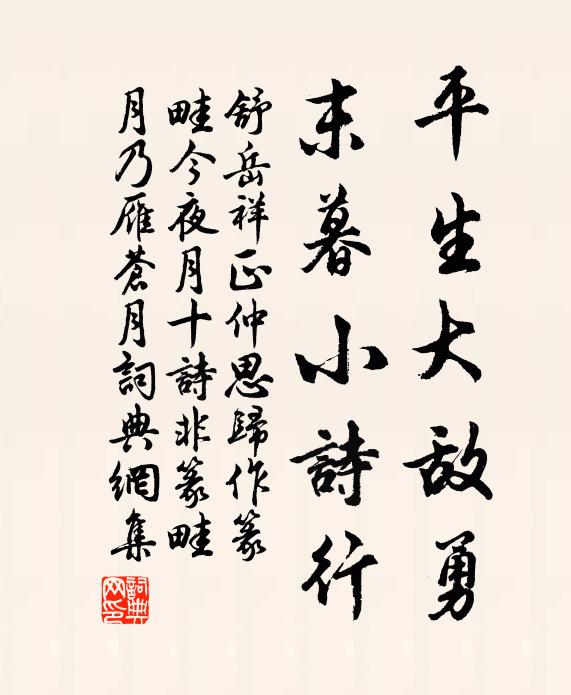 平生大敌勇
末暮小詩行
舒岳祥正仲思歸作篆
畦今夜月十詩非篆畦
月乃雁蒼月詞典網集
詞典网印